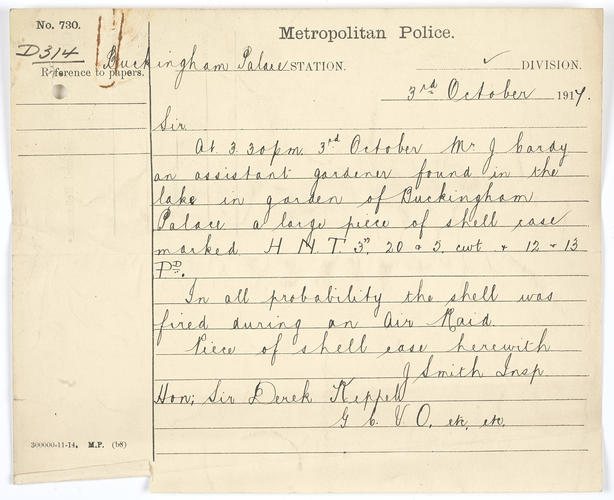 No. 730.
D314
Reference to papers.
Metropolitan Police.
Buckingham Palace STATION. DIVISION.
3rd October 1917.
Sir
At 3.30pm. 3rd October Mr J Cardy
an assistant gardener found in the
lake in garden of Buckingham
Palace a large piece of shell case
marked H. N. T. 3", 20 & 5, cwt. & 12 & 13
PD.
In all probability the shell was
fired during an Air Raid.
Piece of shell case herewith
J Smith Insp
Hon; Sir Derek Keppel
G C. V O, etc, etc.
300000-11-14. M.P. (b8)